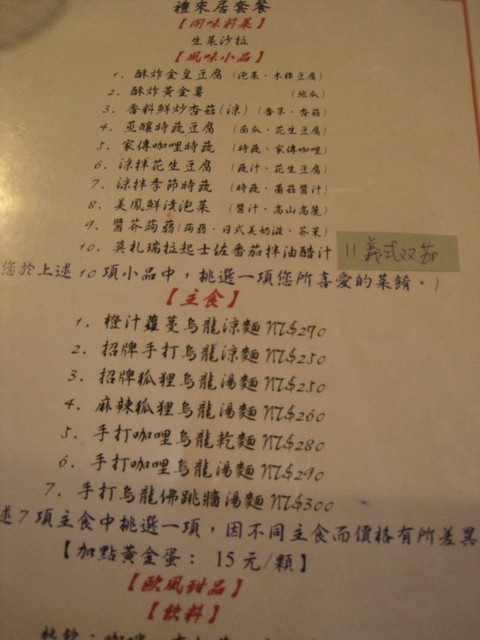 禮來居套餐
【開味前菜】
生菜沙拉
【風味小品】
1. 酥炸金皇豆腐 (泡菜、木棉豆腐)
2. 酥炸黃金薯 (地瓜)
3. 香料鮮炒杏菇(涼) (香草、杏菇)
4. 蒸釀時蔬豆腐 (南瓜、花生豆腐)
5. 家傳咖哩時蔬 (時蔬、家傳咖哩)
6. 涼拌花生豆腐 (蔬汁、花生豆腐)
7. 涼拌季節時蔬 (時蔬、蘑菇醬汁)
8. 美鳳鮮漬泡菜 (醬汁、高山高麗)
9. 醬芥蒟蒻(蒟蒻、日式美奶滋、芥茉)
10. 莫札瑞拉起士佐番茄拌油醋汁 11 義式双茄
您於上述10項小品中，挑選一項您所喜愛的菜餚。)
【主食】
1. 橙汁蘿蔓烏龍涼麵 NT$270
2. 招牌手打烏龍涼麵 NT$250
3. 招牌狐狸烏龍湯麵 NT$250
4. 麻辣狐狸烏龍湯麵 NT$260
5. 手打咖哩烏龍乾麵 NT$280
6. 手打咖哩烏龍湯麵 NT$290
7. 手打烏龍佛跳牆湯麵 NT$300
述7項主食中挑選一項，因不同主食而價格有所差異
【加點黃金蛋： 15元/顆】
【歐風甜品】
【飲料】